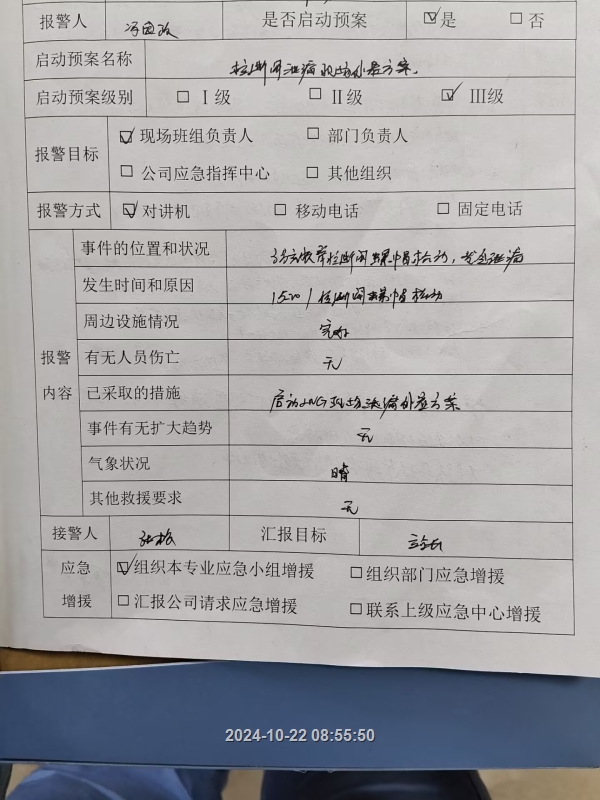 报警人 是否启动预案 ☑是 □否
启动预案名称 检断阀泄漏现场处置方案
启动预案级别 □ Ⅰ级 □ Ⅱ级 ☑ Ⅲ级
报警目标 ☑ 现场班组负责人 □ 部门负责人
□ 公司应急指挥中心 □ 其他组织
报警方式 ☑ 对讲机 □ 移动电话 □ 固定电话
报警内容
事件的位置和状况
发生时间和原因 松动
周边设施情况 完好
有无人员伤亡 无
已采取的措施 启动LNG现场泄漏处置方案
事件有无扩大趋势 无
气象状况 晴
其他救援要求 无
接警人 汇报目标
应急增援 ☑组织本专业应急小组增援 □组织部门应急增援
□汇报公司请求应急增援 □联系上级应急中心增援
2024-10-22 08:55:50